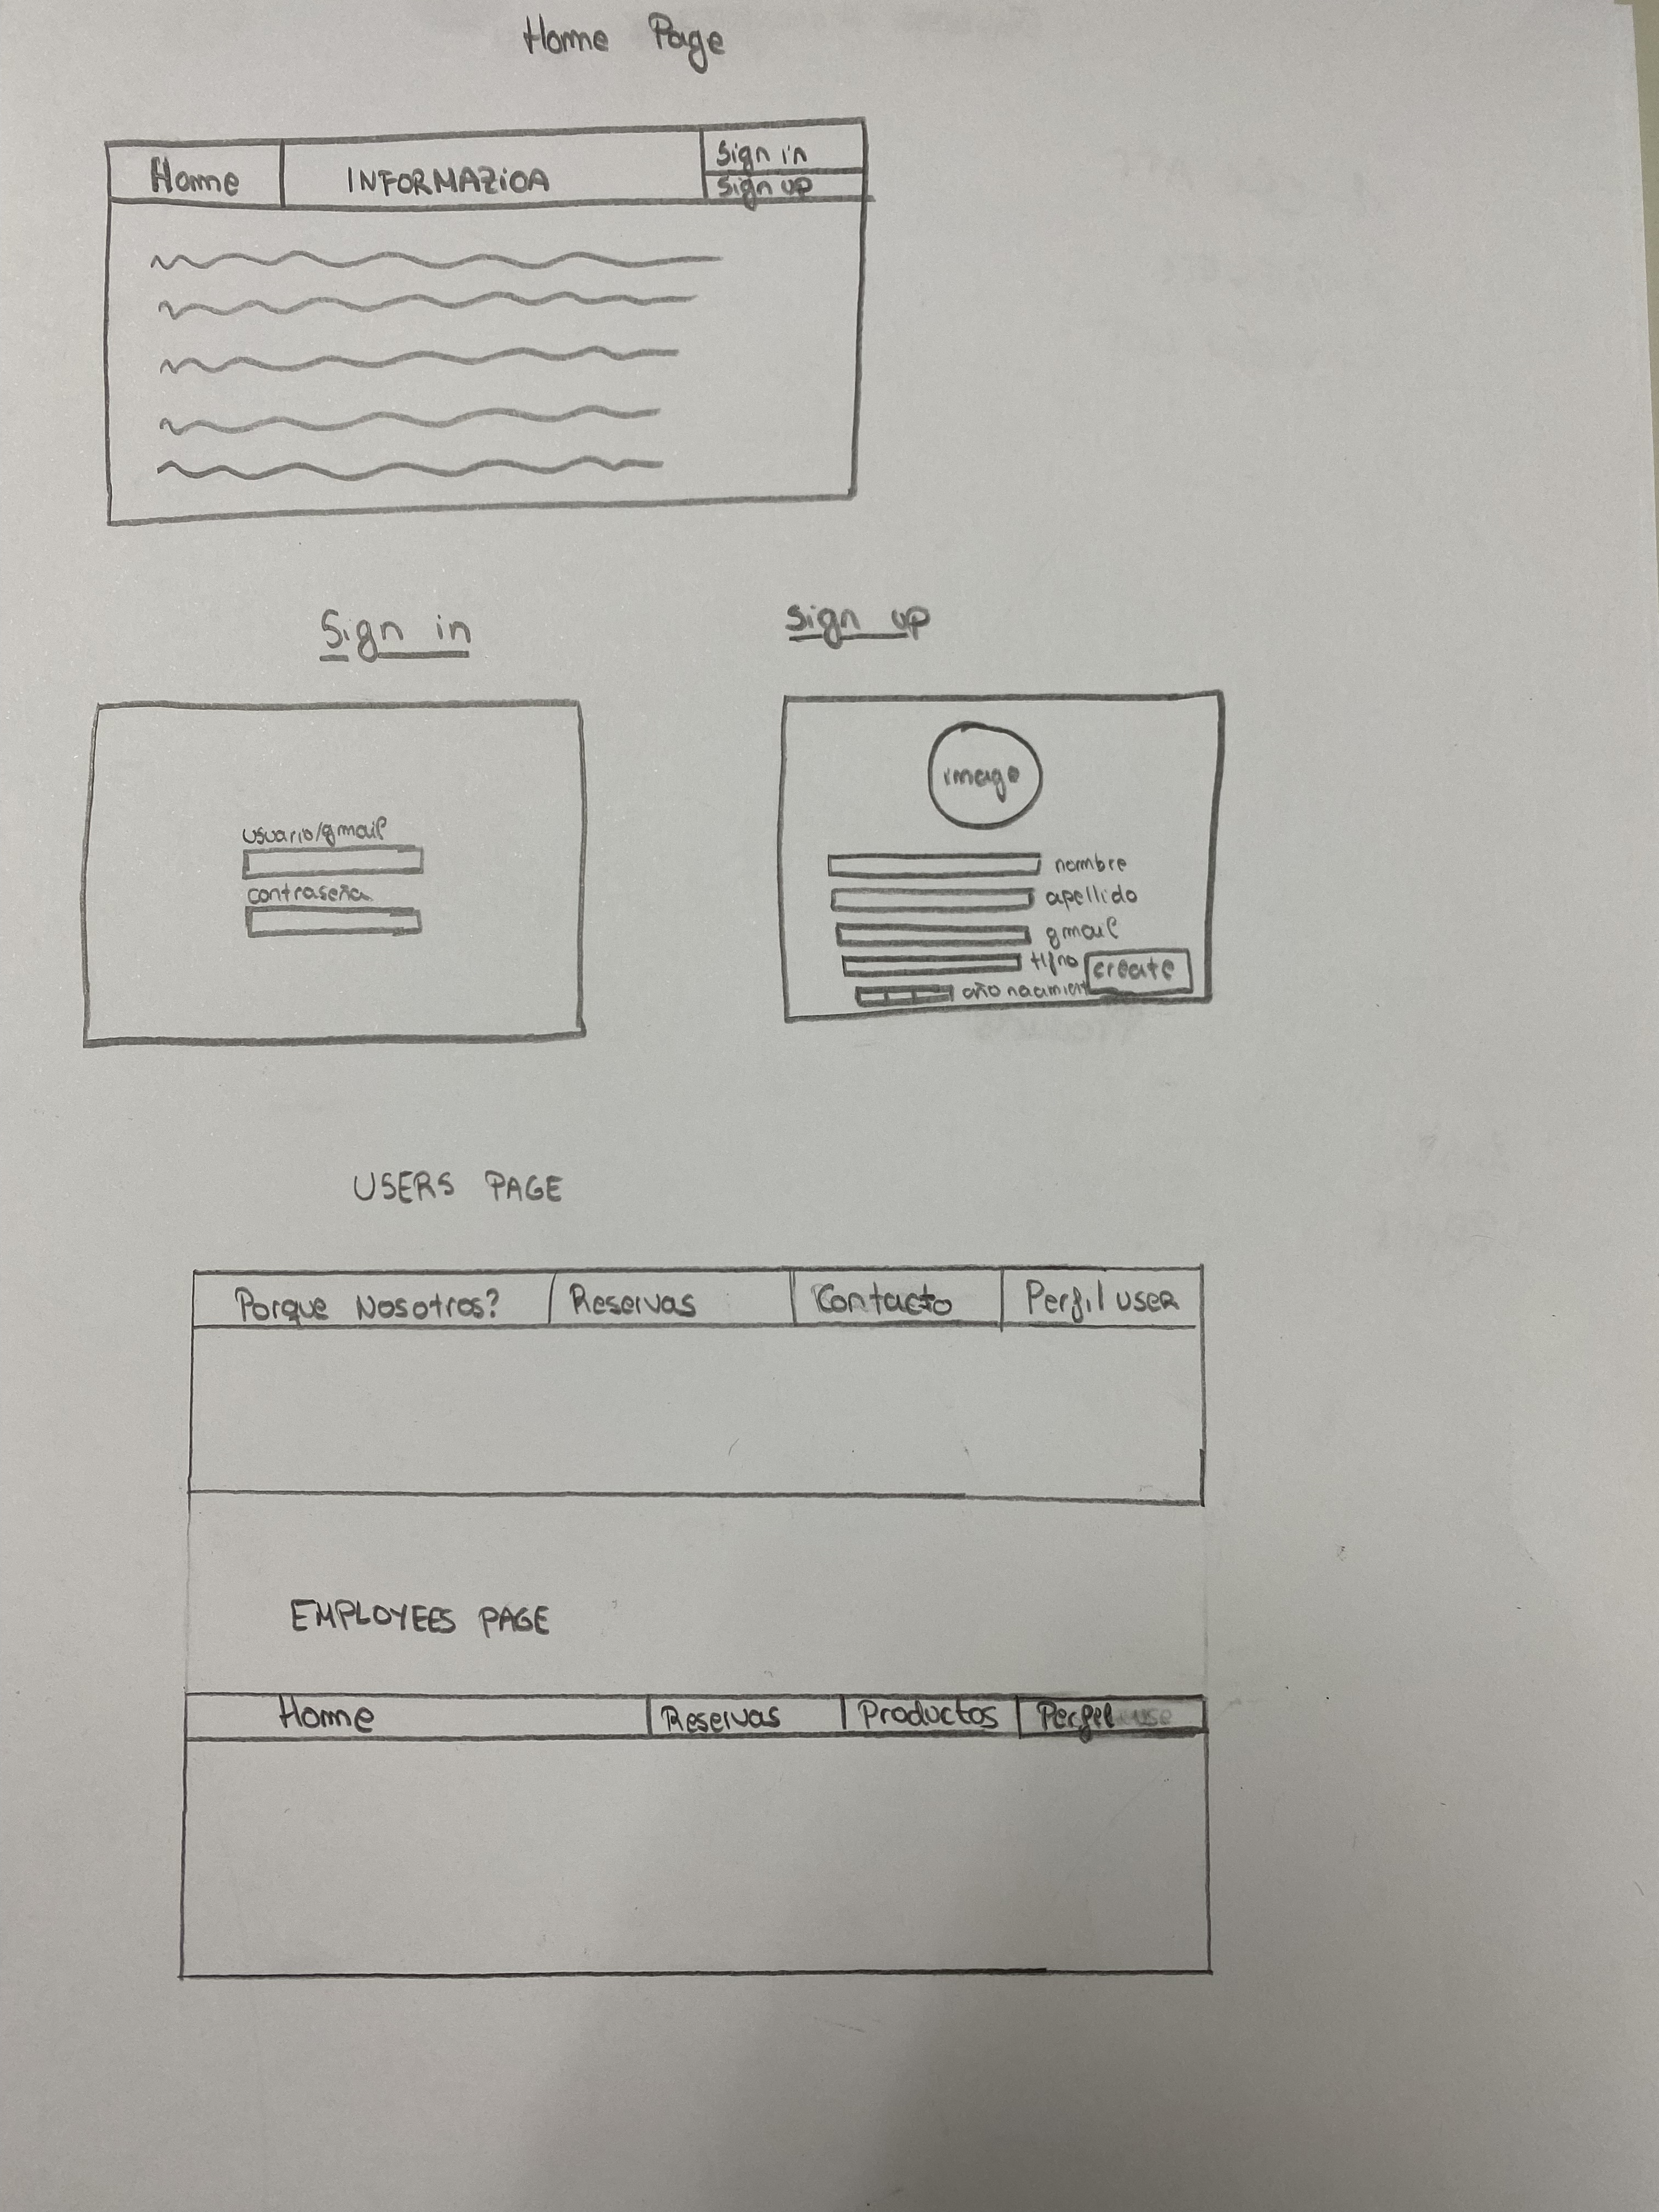 Home Page
Home INFORMAZIOA Sign in
Sign up
Sign in
Sign up
usuario/gmail
contraseña
image
nombre
apellido
gmail
tlfno
año nacimient
create
USERS PAGE
Porque Nosotros? Reservas Contacto Perfil user
EMPLOYEES PAGE
Home Reservas Productos Perfil